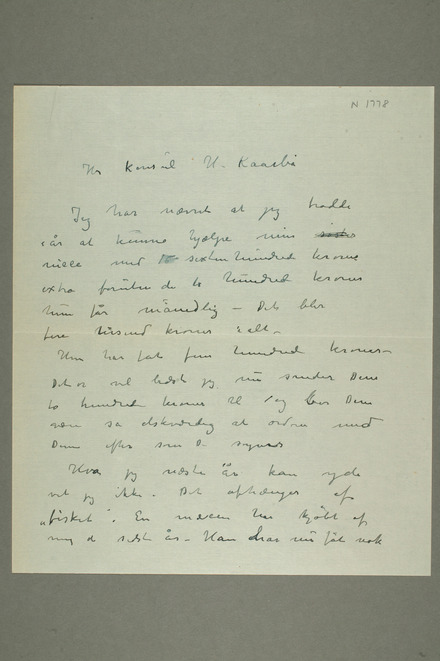 N 1778
Hr Konsul H. Kaarbø
Jeg har nævnt at jeg trodde
i år at kunne hjælpe min
niese med sexten hundred kroner
extra foruten de to hundred kroner
hun får månedlig – Det blir
fire tusend kroner i alt –
Hun har fåt fem hundred kroner –
Det er vel bedst jeg nu sender Dem
to hundred kroner til og ber Dem
være så elskværdig at ordne med
Dem efter som De synes
Hva jeg næste år kan yde
vet jeg ikke. Det afhænger af
"fisket". En mæcen har kjøbt af
mig de sidste år – Han har nu fåt nok